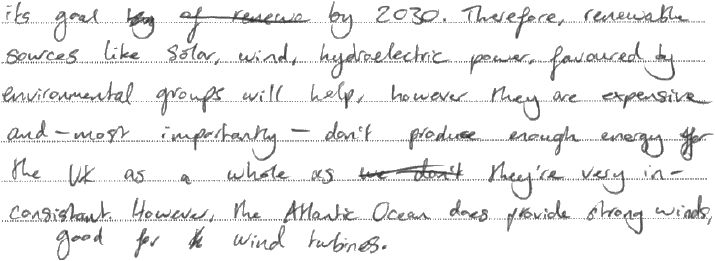 its goal by of renewe by 2030. Therefore, renewable
sources like solar, wind, hydroelectric power, favoured by
environmental groups will help, however they are expensive
and - most importantly - don't produce enough energy for
the UK as a whole as we don't they're very in-
consistant. However, the Atlantic Ocean does provide strong winds,
good for wind turbines.